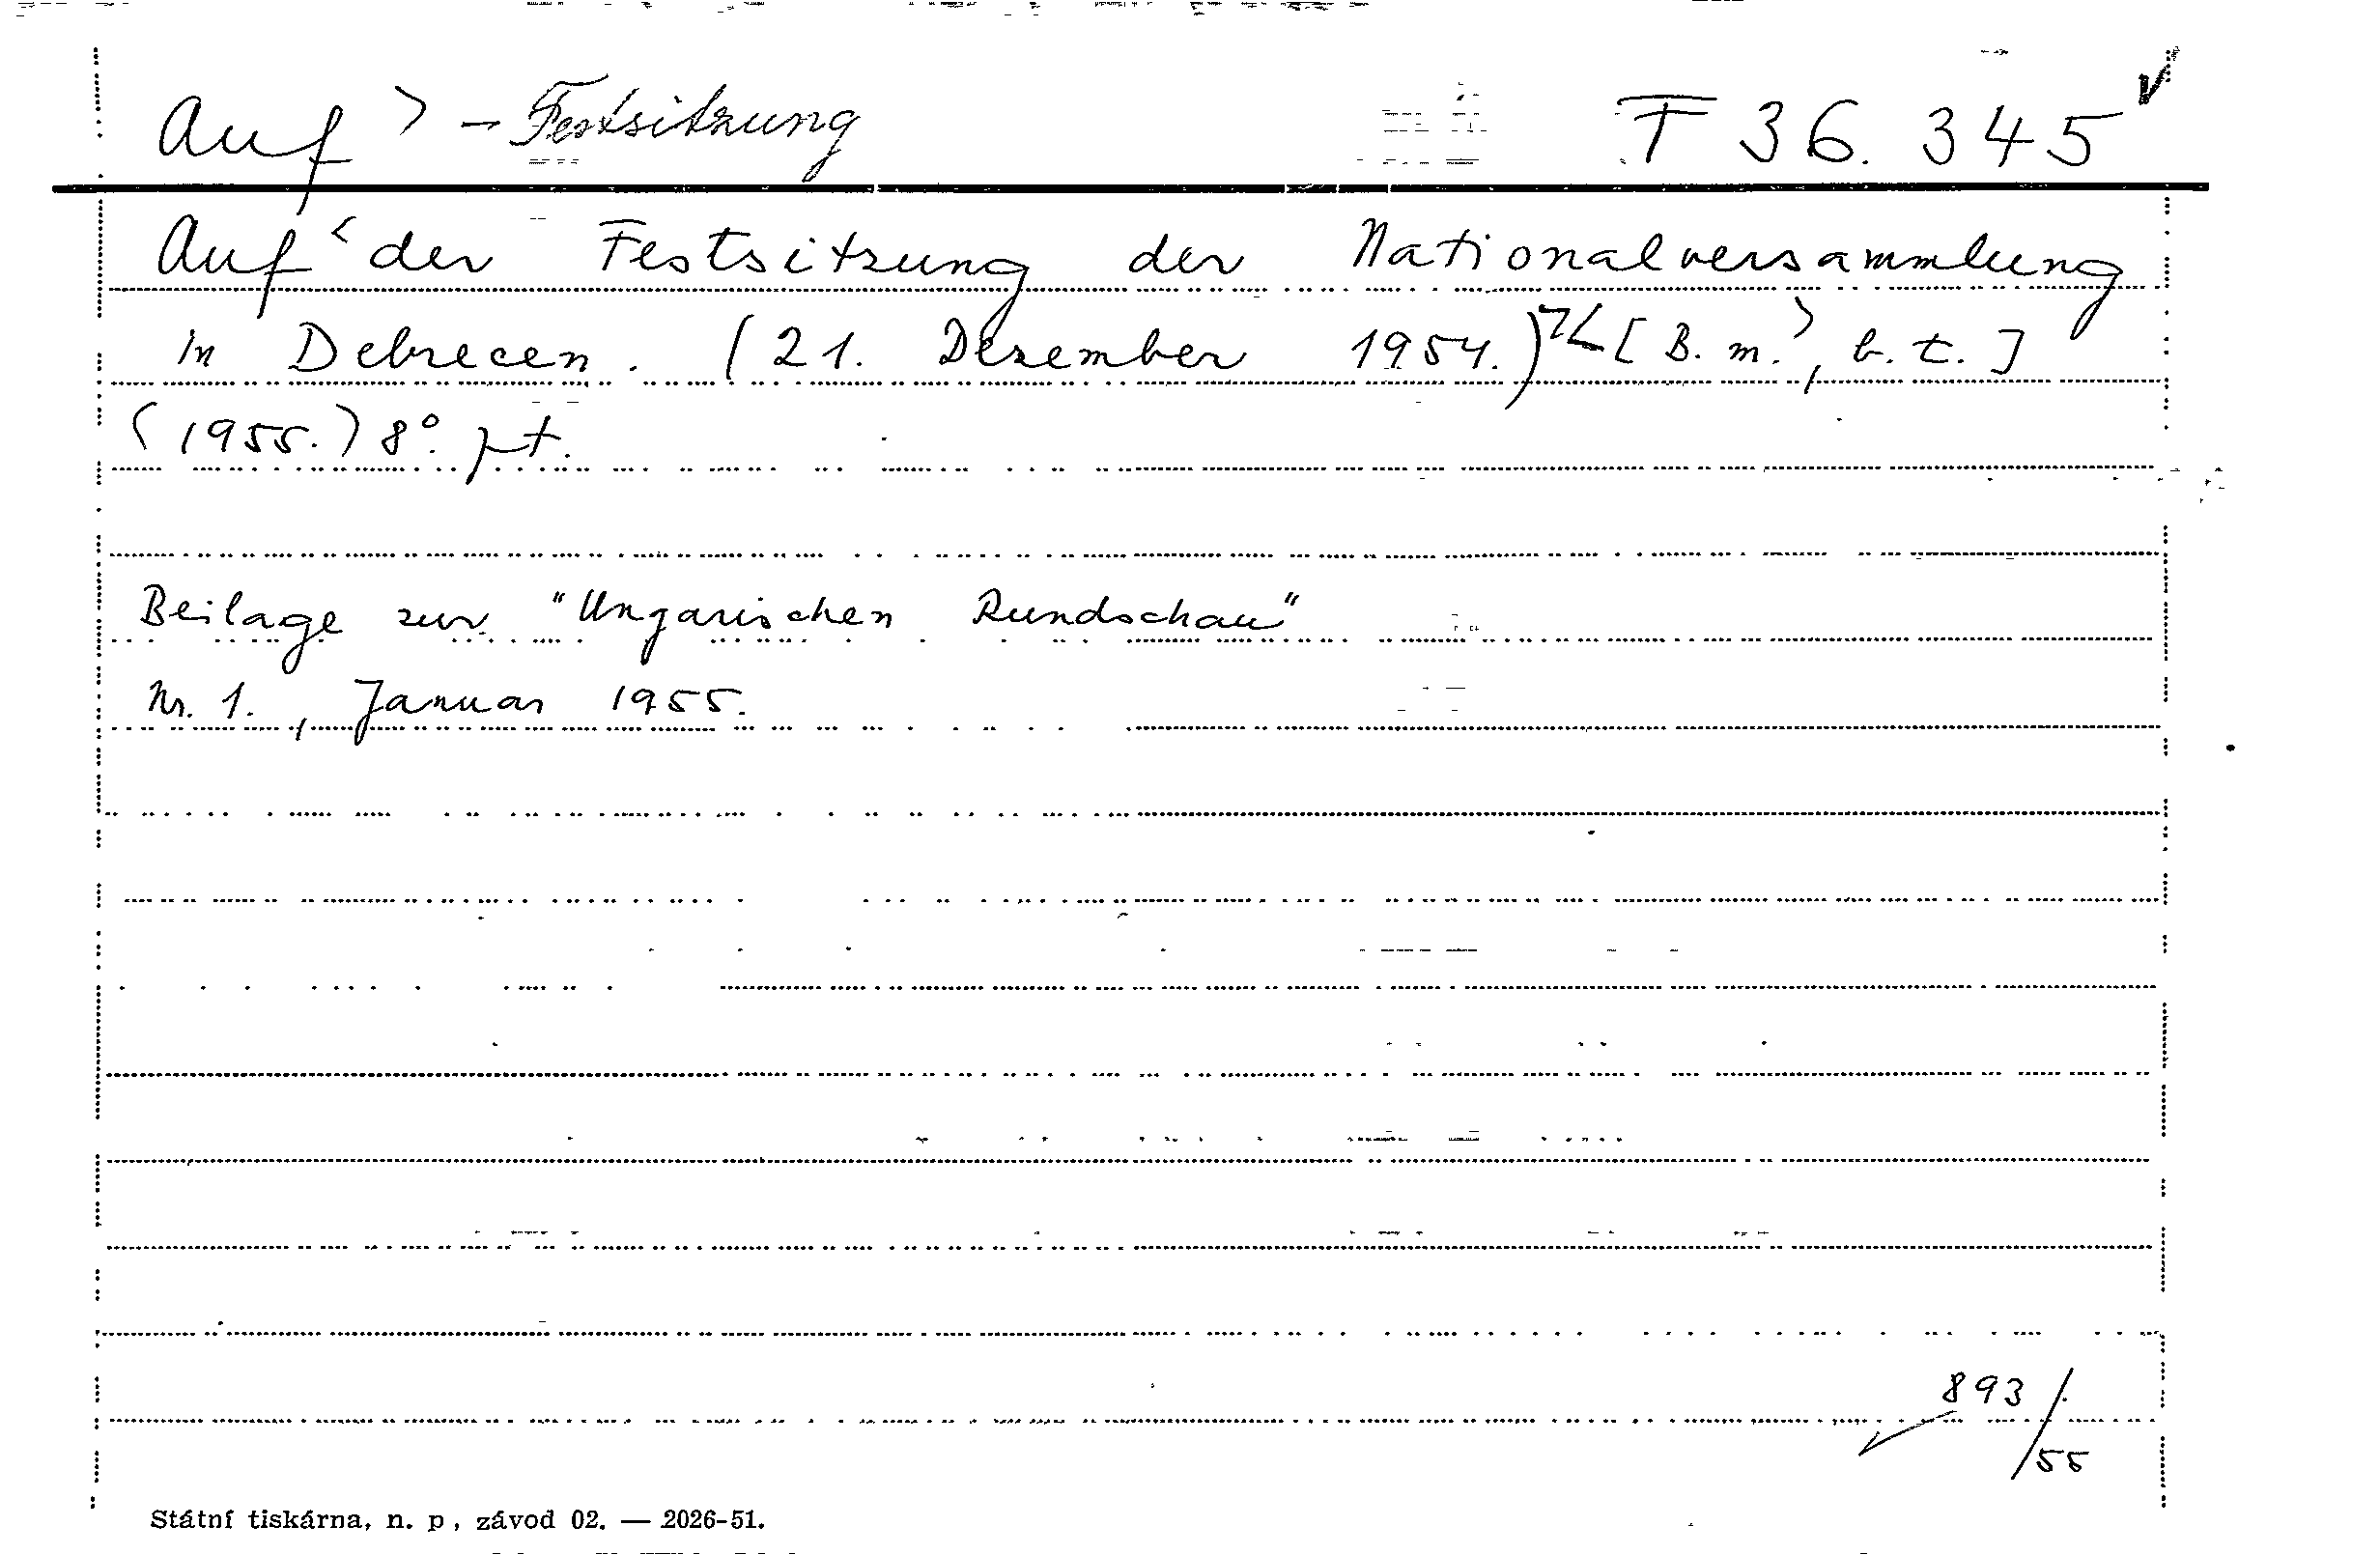 Auf > – Festsitzung T 36.345
Auf < der Festsitzung der Nationalversammlung
in Debrecen. (21. Dezember 1954.) [B. m.>, b. t.]
(1955.) 8°. pt.
Beilage zur "Ungarischen Rundschau"
Nr. 1., Januar 1955.
893/55
Státní tiskárna, n. p., závod 02. — 2026-51.